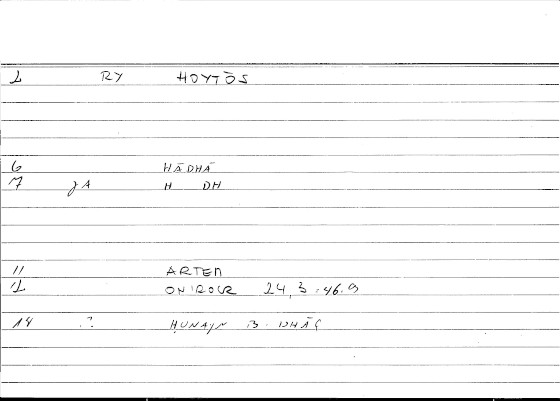 2 RY HOYTŌS
6 HĀDHĀ
7 JA H DH
11 ARTEM
12 ONIROCR 24, 3 . 46.9
14 ḤUNAYN B.